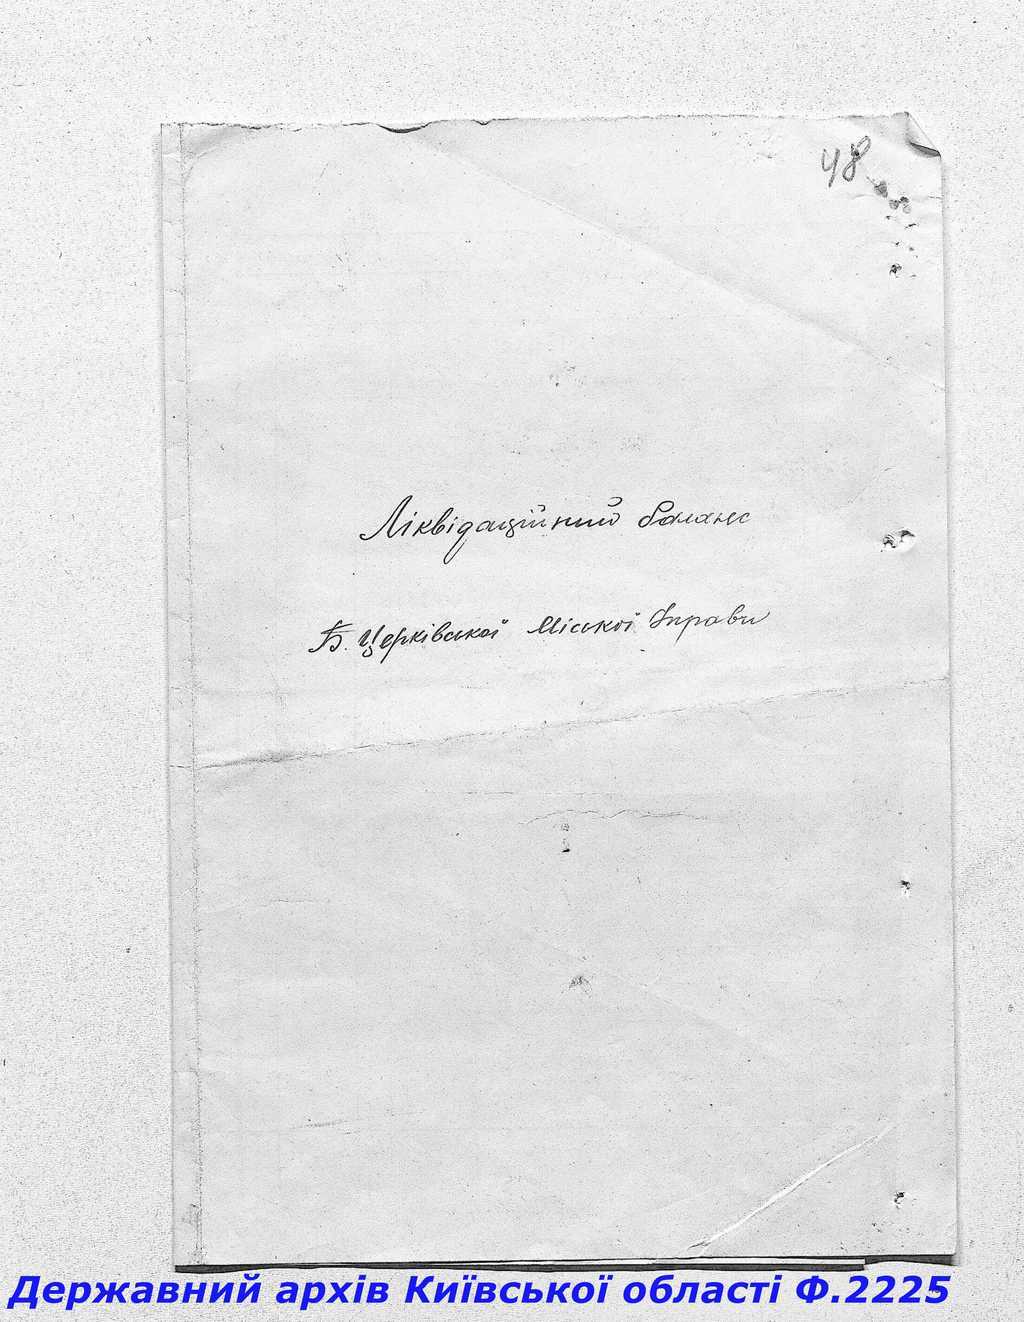 48
Ліквідаційний баланс
Б. Церківської Міської Управи
Державний архів Київської області Ф.2225